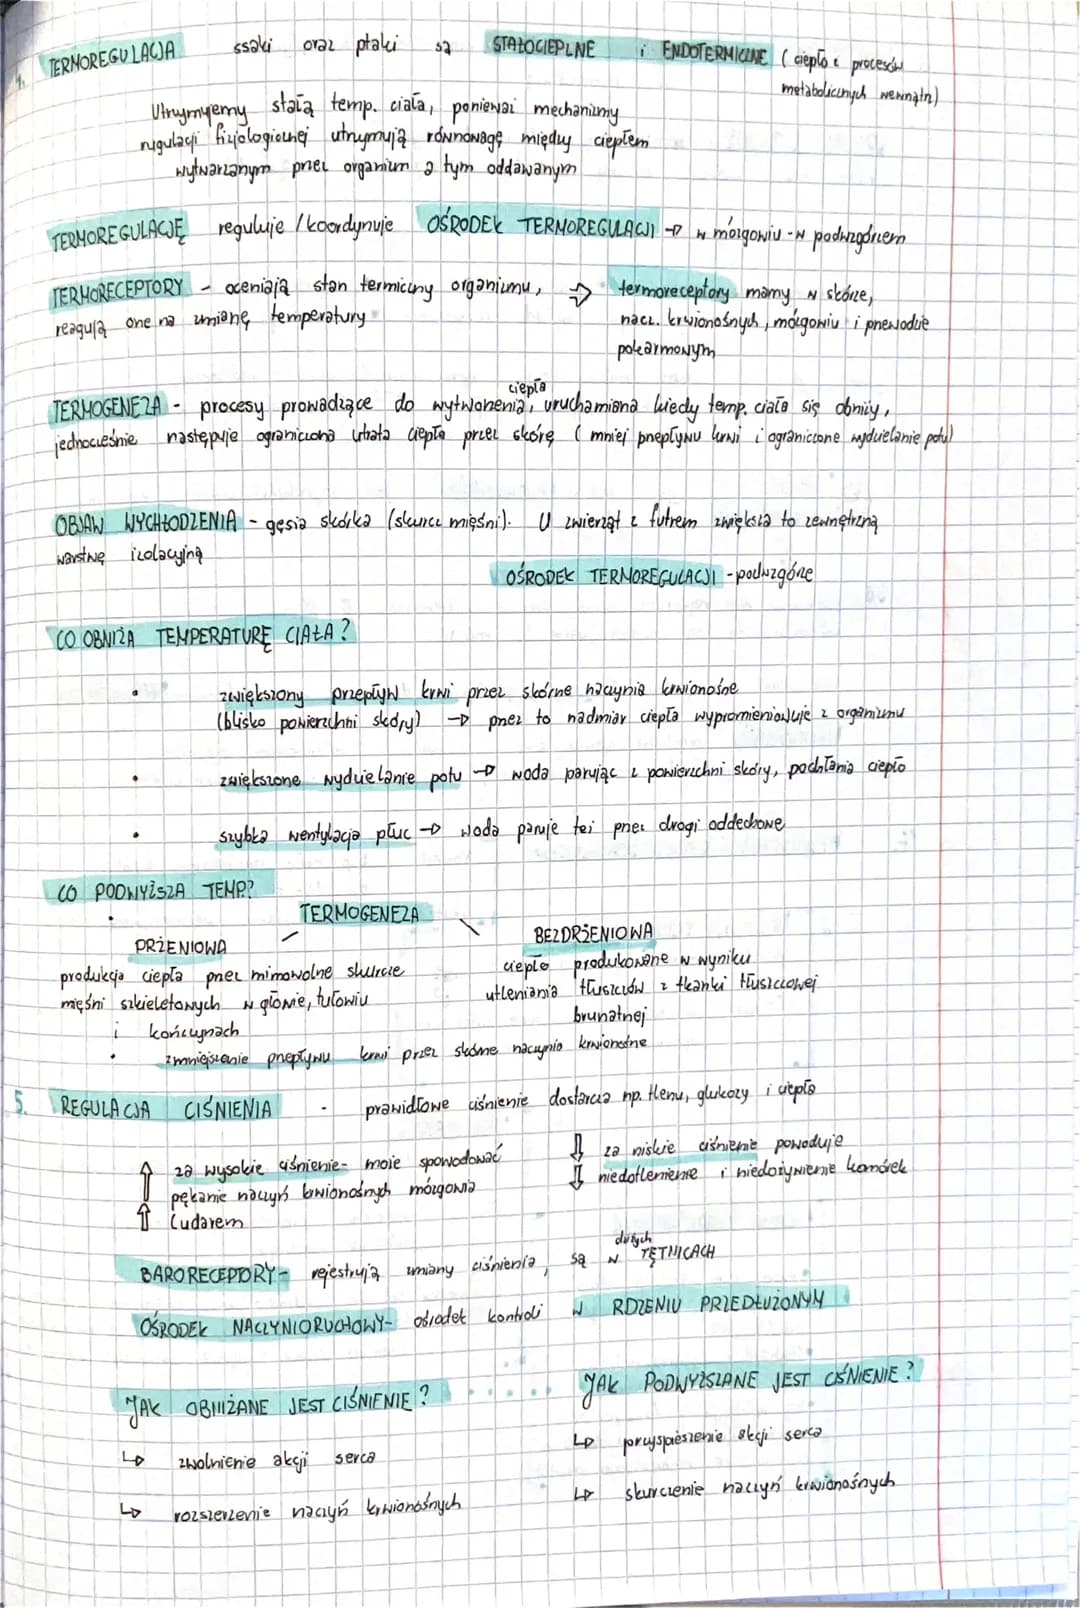 1. TERMOREGULACJA ssaki oraz ptaki są STAŁOCIEPLNE i ENDOTERMICZNE (ciepło z procesów
metabolicznych wewnątrz)
Utrzymujemy stałą temp. ciała, ponieważ mechanizmy
regulacji fizjologicznej utrzymują równowagę między ciepłem
wytwarzanym przez organizm a tym oddawanym
TERMOREGULACJĘ reguluje / koordynuje OŚRODEK TERMOREGULACJI → w mózgowiu - w podwzgórzem
TERMORECEPTORY - oceniają stan termiczny organizmu, ⇒ termoreceptory mamy w skórze,
reagują one na zmianę temperatury
nacz. krwionośnych, mózgowiu i przewodzie
pokarmowym
ciepła
TERMOGENEZA - procesy prowadzące do wytworzenia, uruchamiana kiedy temp. ciała się obniży,
jednocześnie następuje ograniczona utrata ciepła przez skórę (mniej przepływu krwi i ograniczone wydzielanie potu)
OBJAW WYCHŁODZENIA - gęsia skórka (skurcz mięśni). U zwierząt z futrem zwiększa to zewnętrzną
warstwę izolacyjną
OŚRODEK TERMOREGULACJI - podwzgórze
CO OBNIŻA TEMPERATURĘ CIAŁA?
• zwiększony przepływ krwi przez skórne naczynia krwionośne
(blisko powierzchni skóry) → przez to nadmiar ciepła wypromieniowuje z organizmu
• zwiększone wydzielanie potu → woda parując z powierzchni skóry, pochłania ciepło
• szybka wentylacja płuc → woda paruje też przez drogi oddechowe
CO PODWYŻSZA TEMP.?
• TERMOGENEZA
DRŻENIOWA
produkcja ciepła przez mimowolne skurcze
mięśni szkieletowych w głowie, tułowiu
i kończynach
BEZDRŻENIOWA
ciepło produkowane w wyniku
utleniania tłuszczów z tkanki tłuszczowej
brunatnej
• zmniejszenie przepływu krwi przez skórne naczynia krwionośne
5. REGULACJA CIŚNIENIA - prawidłowe ciśnienie dostarcza np. tlenu, glukozy i ciepła
↑ za wysokie ciśnienie - może spowodować
pękanie naczyń krwionośnych mózgowia
↑ (udarem
↓ za niskie ciśnienie powoduje
↓ niedotlenienie i niedożywienie komórek
BARORECEPTORY - rejestrują zmiany ciśnienia, są w dużych TĘTNICACH
OŚRODEK NACZYNIORUCHOWY - ośrodek kontroli w RDZENIU PRZEDŁUŻONYM
JAK OBNIŻANE JEST CIŚNIENIE?
↳ zwolnienie akcji serca
↳ rozszerzenie naczyń krwionośnych
JAK PODWYŻSZANE JEST CIŚNIENIE?
↳ przyspieszenie akcji serca
↳ skurczenie naczyń krwionośnych